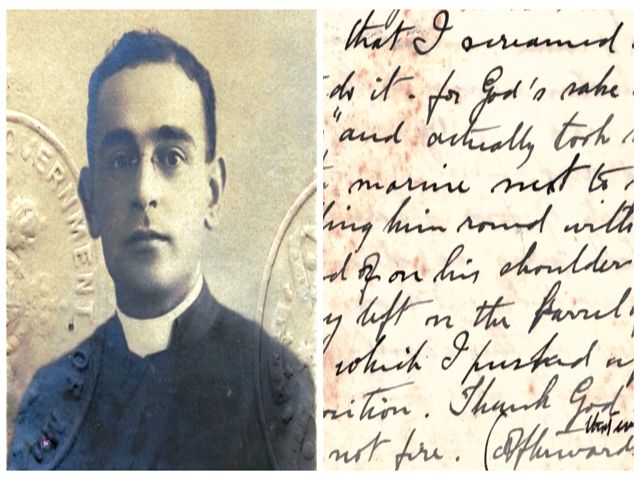 GOVERNMENT
that I screamed
do it. for God's sake
"and actually took
marine next to
ing him round with
d of on his shoulder
y left on the barrel
which I pushed
osition. Thank God
that
not fire. (Afterwards